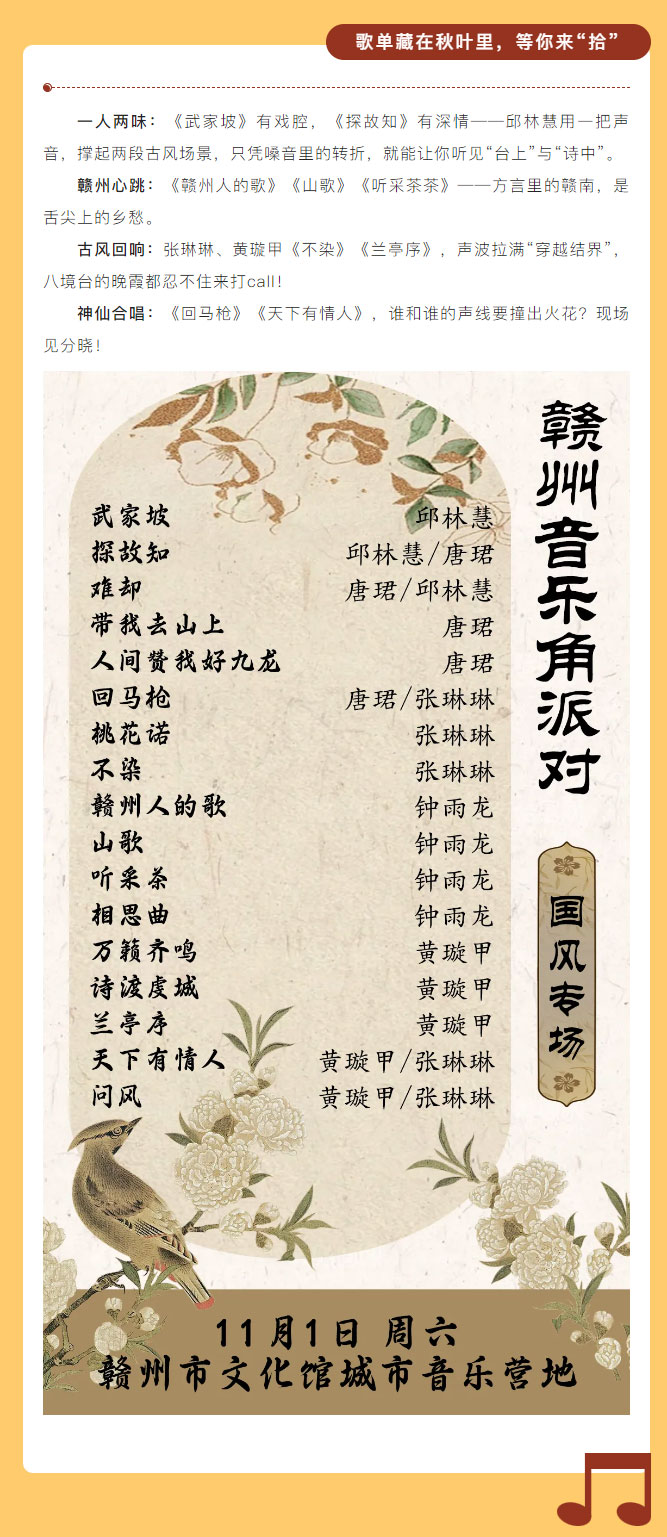 歌单藏在秋叶里，等你来“拾”
一人两味：《武家坡》有戏腔，《探故知》有深情——邱林慧用一把声
音，撑起两段古风场景，只凭嗓音里的转折，就能让你听见“台上”与“诗中”。
赣州心跳：《赣州人的歌》《山歌》《听采茶茶》——方言里的赣南，是
舌尖上的乡愁。
古风回响：张琳琳、黄璇甲《不染》《兰亭序》，声波拉满“穿越结界”，
八境台的晚霞都忍不住来打call！
神仙合唱：《回马枪》《天下有情人》，谁和谁的声线要撞出火花？现场
见分晓！
赣州音乐角派对
国风专场
武家坡 邱林慧
探故知 邱林慧/唐珺
难却 唐珺/邱林慧
带我去山上 唐珺
人间赞我好九龙 唐珺
回马枪 唐珺/张琳琳
桃花诺 张琳琳
不染 张琳琳
赣州人的歌 钟雨龙
山歌 钟雨龙
听采茶 钟雨龙
相思曲 钟雨龙
万籁齐鸣 黄璇甲
诗渡虔城 黄璇甲
兰亭序 黄璇甲
天下有情人 黄璇甲/张琳琳
问风 黄璇甲/张琳琳
11月1日 周六
赣州市文化馆城市音乐营地